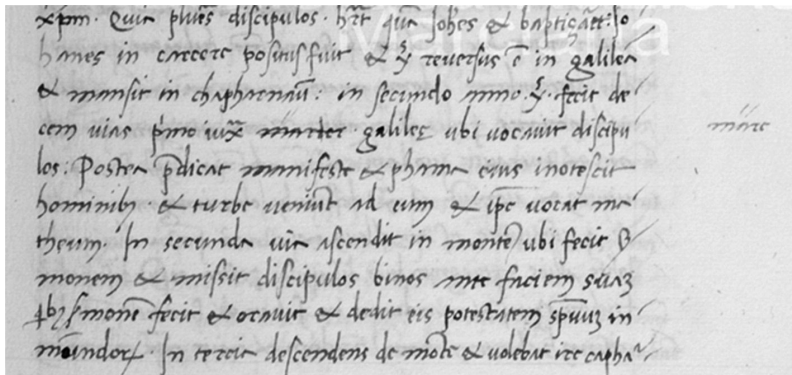 xp̄m. Quia plures discipulos. hr̄et quā Joh̄es & baptiçaret: Jo
hanes in carcere positus fuit & x̄p̄s reversus ē in galilea
& mansit in chapharnaū: in secundo anno. x̄p̄s. fecit de
cem vias p̄mo iuxᵃ marter galileę ubi vocavit discipu
mare
los: Postea p̄dicat manifeste & phama eius inotescit
hominibꝫ. & turbe veniūt ad eum & ip̄e vocat ma
theum. In secunda via ascendit in monte ubi fecit
monem & missit discipulos binos ante faciem suaꝫ
monē fecit & oravit & dedit eis potestatem sp̄uuꝫ in
mūndorꝝ. In tercia descendens de mōte & volebat ire capha